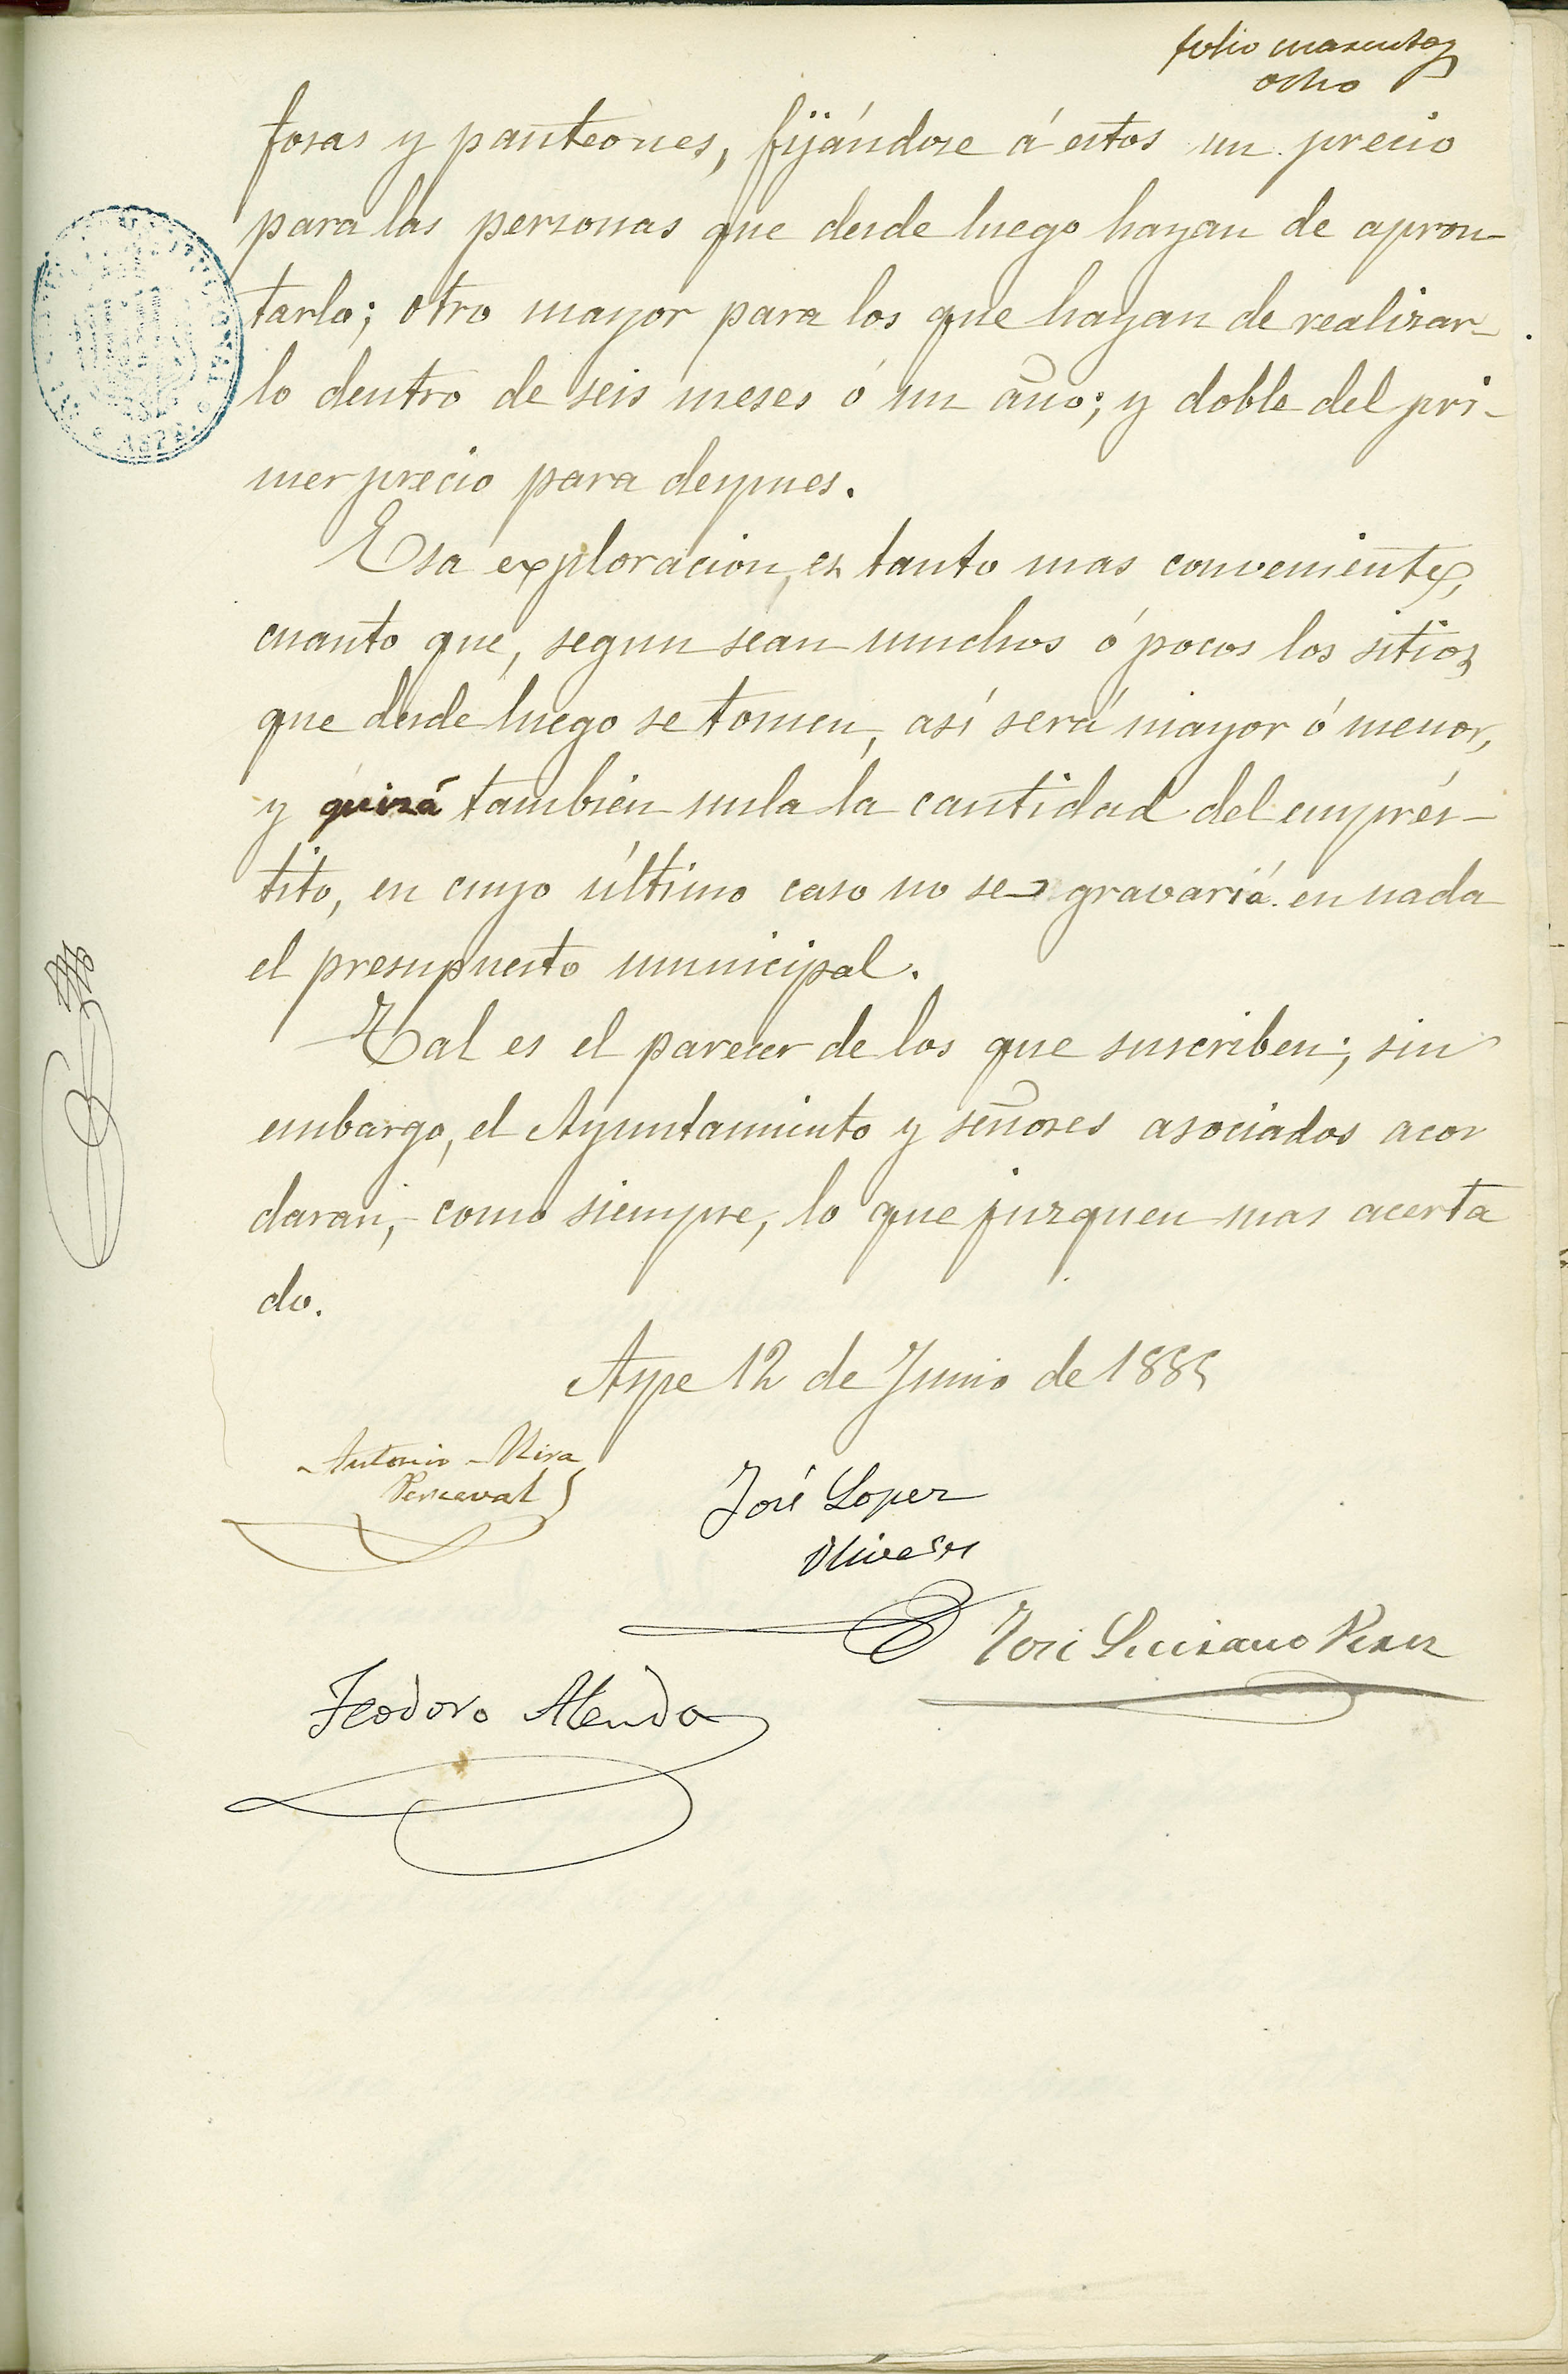 folio cuarenta y
ocho
fosas y panteones, fijándose á estos un precio
para las personas que desde luego hayan de apron-
tarlo; otro mayor para los que hayan de realizar-
lo dentro de seis meses ó un año; y doble del pri-
mer precio para despues.
Esa exploracion, es tanto mas conveniente,
cuanto que, segun sean muchos ó pocos los sitios
que desde luego se tomen, así será mayor ó menor,
y quizá también nula la cantidad del emprés-
tito, en cuyo último caso no se gravaría en nada
el presupuesto municipal.
Tal es el parecer de los que suscriben; sin
embargo, el Ayuntamiento y señores asociados acor
daran, como siempre, lo que juzguen mas acerta
do.
Aspe 12 de Junio de 1885
Antonio Mira
Perceval
José Lopez
Olivares
José Luciano Perez
Teodoro Alenda